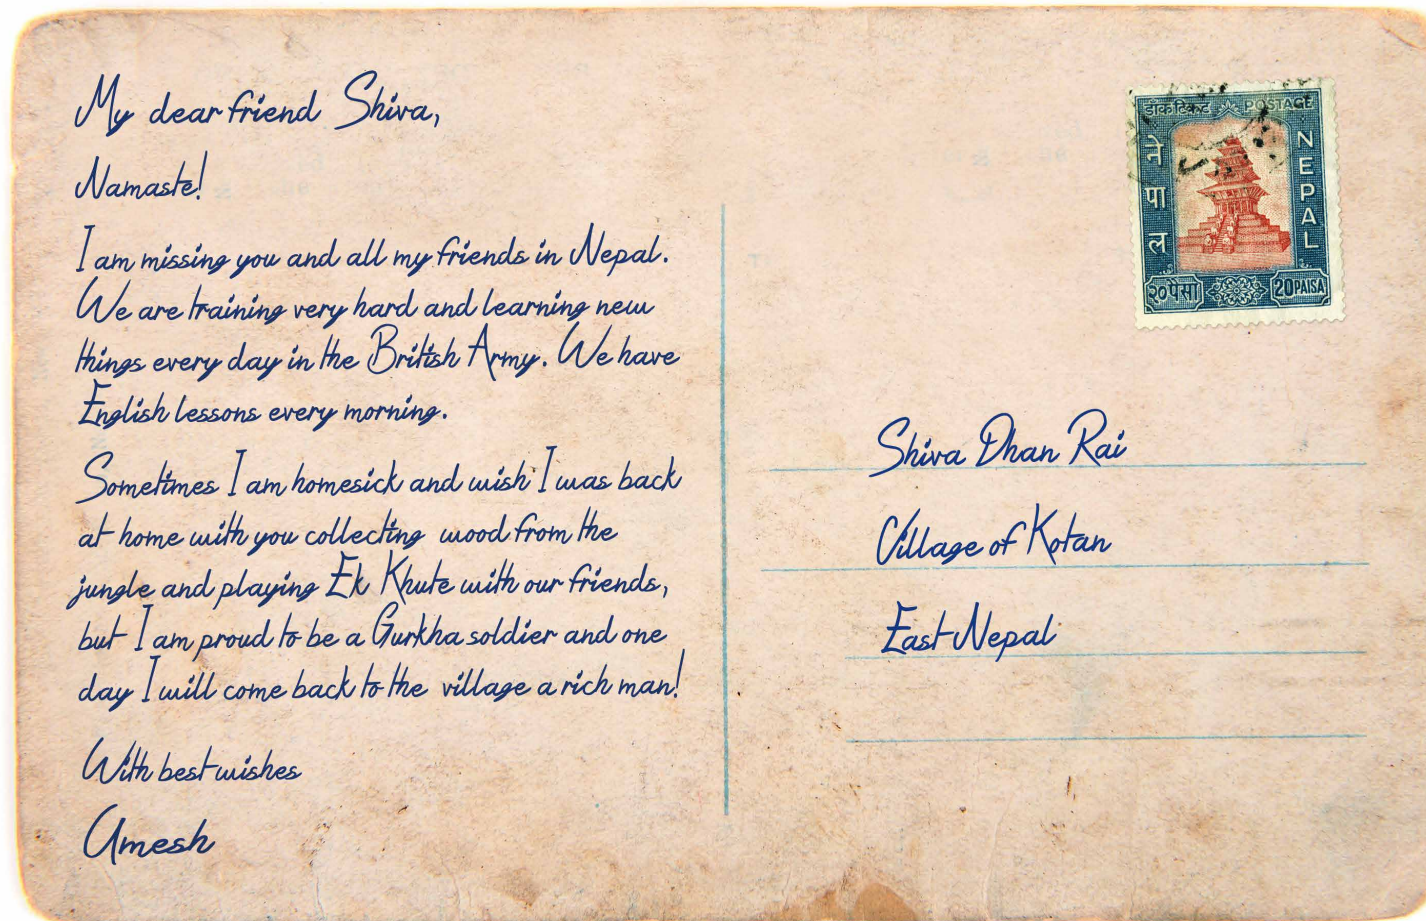 My dear friend Shiva,
Namaste!
I am missing you and all my friends in Nepal.
We are training very hard and learning new
things every day in the British Army. We have
English lessons every morning.
Sometimes I am homesick and wish I was back
at home with you collecting wood from the
jungle and playing Ek Khute with our friends,
but I am proud to be a Gurkha soldier and one
day I will come back to the village a rich man!
With best wishes
Umesh
डाक टिकट POSTAGE
नेपाल
NEPAL
२० पैसा 20 PAISA
Shiva Dhan Rai
Village of Kotan
East Nepal